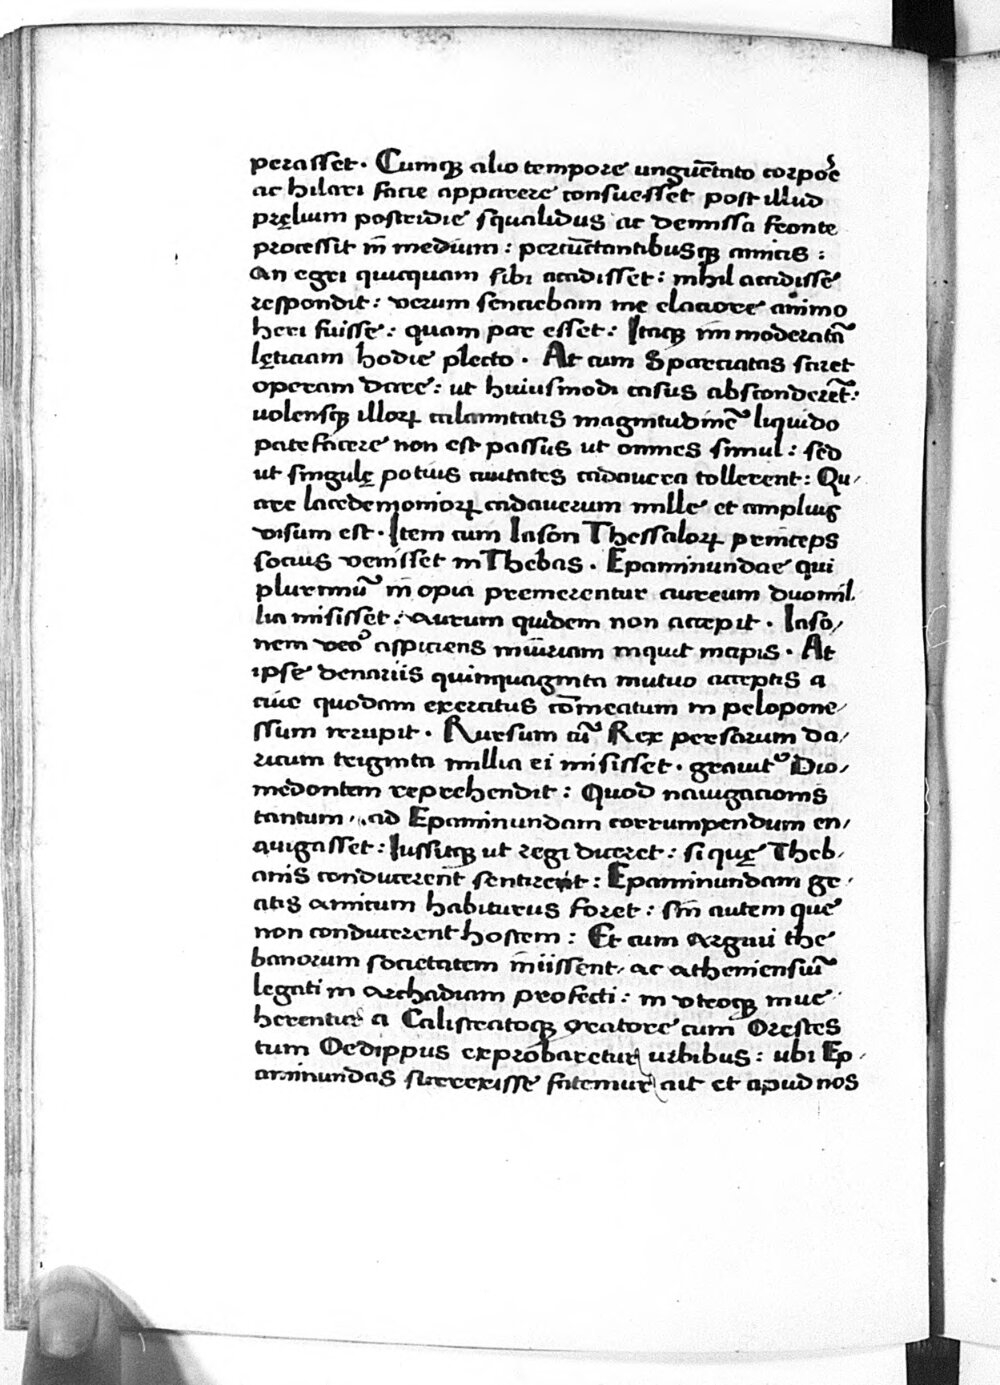 perasset. Cumqꝫ alio tempore ungūētato corpoꝛe
ac hilari facie apparere consuesset post illud
pręlium postridie squalidus ac demissa fronte
processit in medium: percūctantibusqꝫ amicis:
an egri quicquam sibi accidisset: nihil accidisse
respondit: verum sentiebam me elatiore animo
heri fuisse: quam par esset: Itaqꝫ immoderatā
lęticiam hodie plecto. At cum Sparciatas sciret
operam dare: ut huiusmodi casus absconderēt:
uolensqꝫ illoꝝ calamitatis magnitudinē liquido
patefacere non est passus ut omnes simul: sed
ut singulę potius ciuitates cadauera tollerent: Qu/
are lacedemonioꝝ cadauerum mille et amplius
visum est. Item cum Iason Thessaloꝝ princeps
socius venisset in Thebas. Epaminundae qui
plurimū in opia premerentur aureum duo mil
lia misisset: aurum quidem non accepit. Iaso/
nem veo᷒ aspiciens iniuriam inquit incipis. At
ipse denariis quinquaginta mutuo acceptis a
ciue quodam exercitus cōmeatum in pelopone/
ssum irrupit. Rursum cū Rex persarum da/
ricum triginta millia ei misisset. grauit᷒ Dio/
medontem reprehendit: Quod nauigacionis
tantum ad Epaminundam corrumpendum en/
auigasset: Iussitqꝫ ut regi diceret: si quę Theb/
anis conducerent sentirent: Epaminundam gr/
atis amicum habiturus foret: sin autem que
non conducerent hostem: Et cum Argiui the
banorum societatem iniissent, ac atheniensiū
legati in archadiam profecti: in vtrosqꝫ inue
herentur a Calistratoqꝫ oratore cum Orestes
tum Oedippus exprobaretur urbibus: ubi Ep/
aminundas surrexisse fatemur ait et apud nos